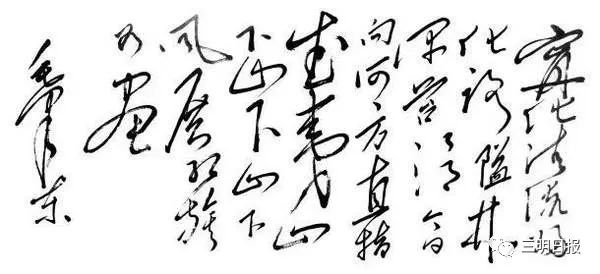 寧化清流归
化路隘林
深苔滑今日
向何方直指
武夷山
下山下山下
风展红旗
如画
毛泽东
三明日报